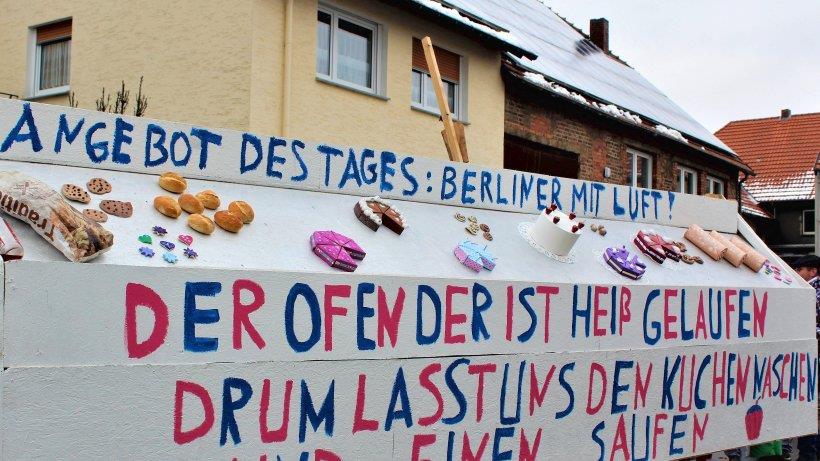 ANGEBOT DES TAGES: BERLINER MIT LUFT!
DER OFEN DER IST HEIß GELAUFEN
DRUM LASST UNS DEN KUCHEN NASCHEN
UND EINEN SAUFEN